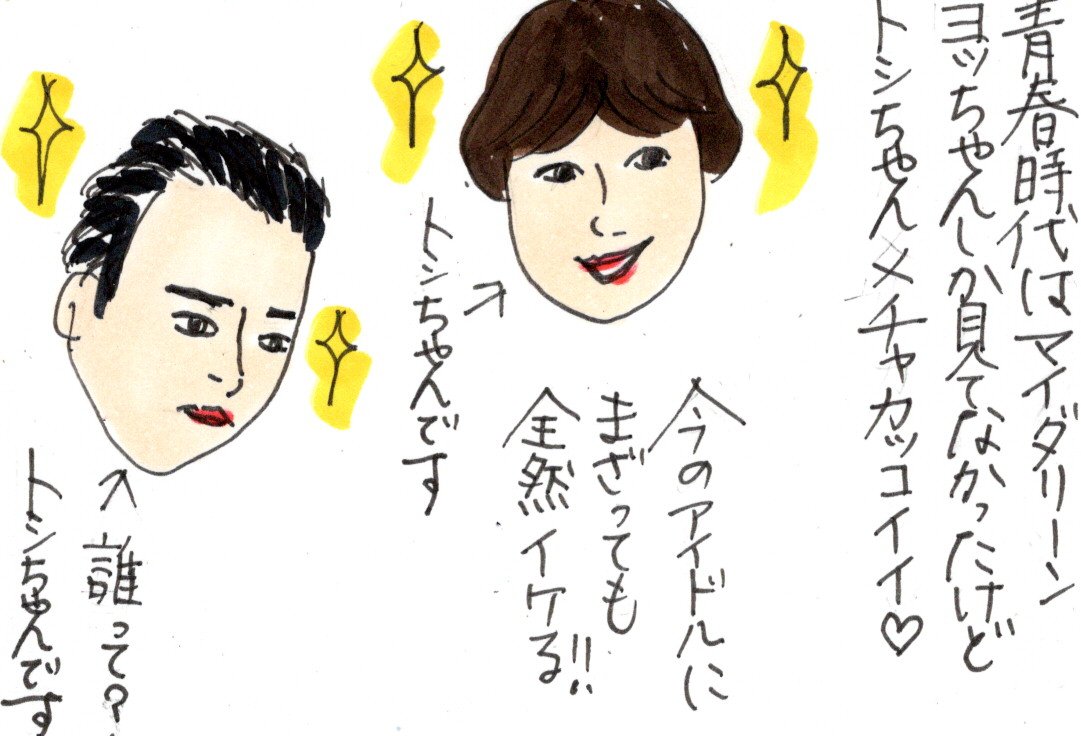 青春時代はマイダリーン
ヨッちゃんしか見てなかったけど
トシちゃんメチャカッコイイ♡
今のアイドルに
まざっても
全然イケる!!
トシちゃんです
誰って?
トシちゃんです